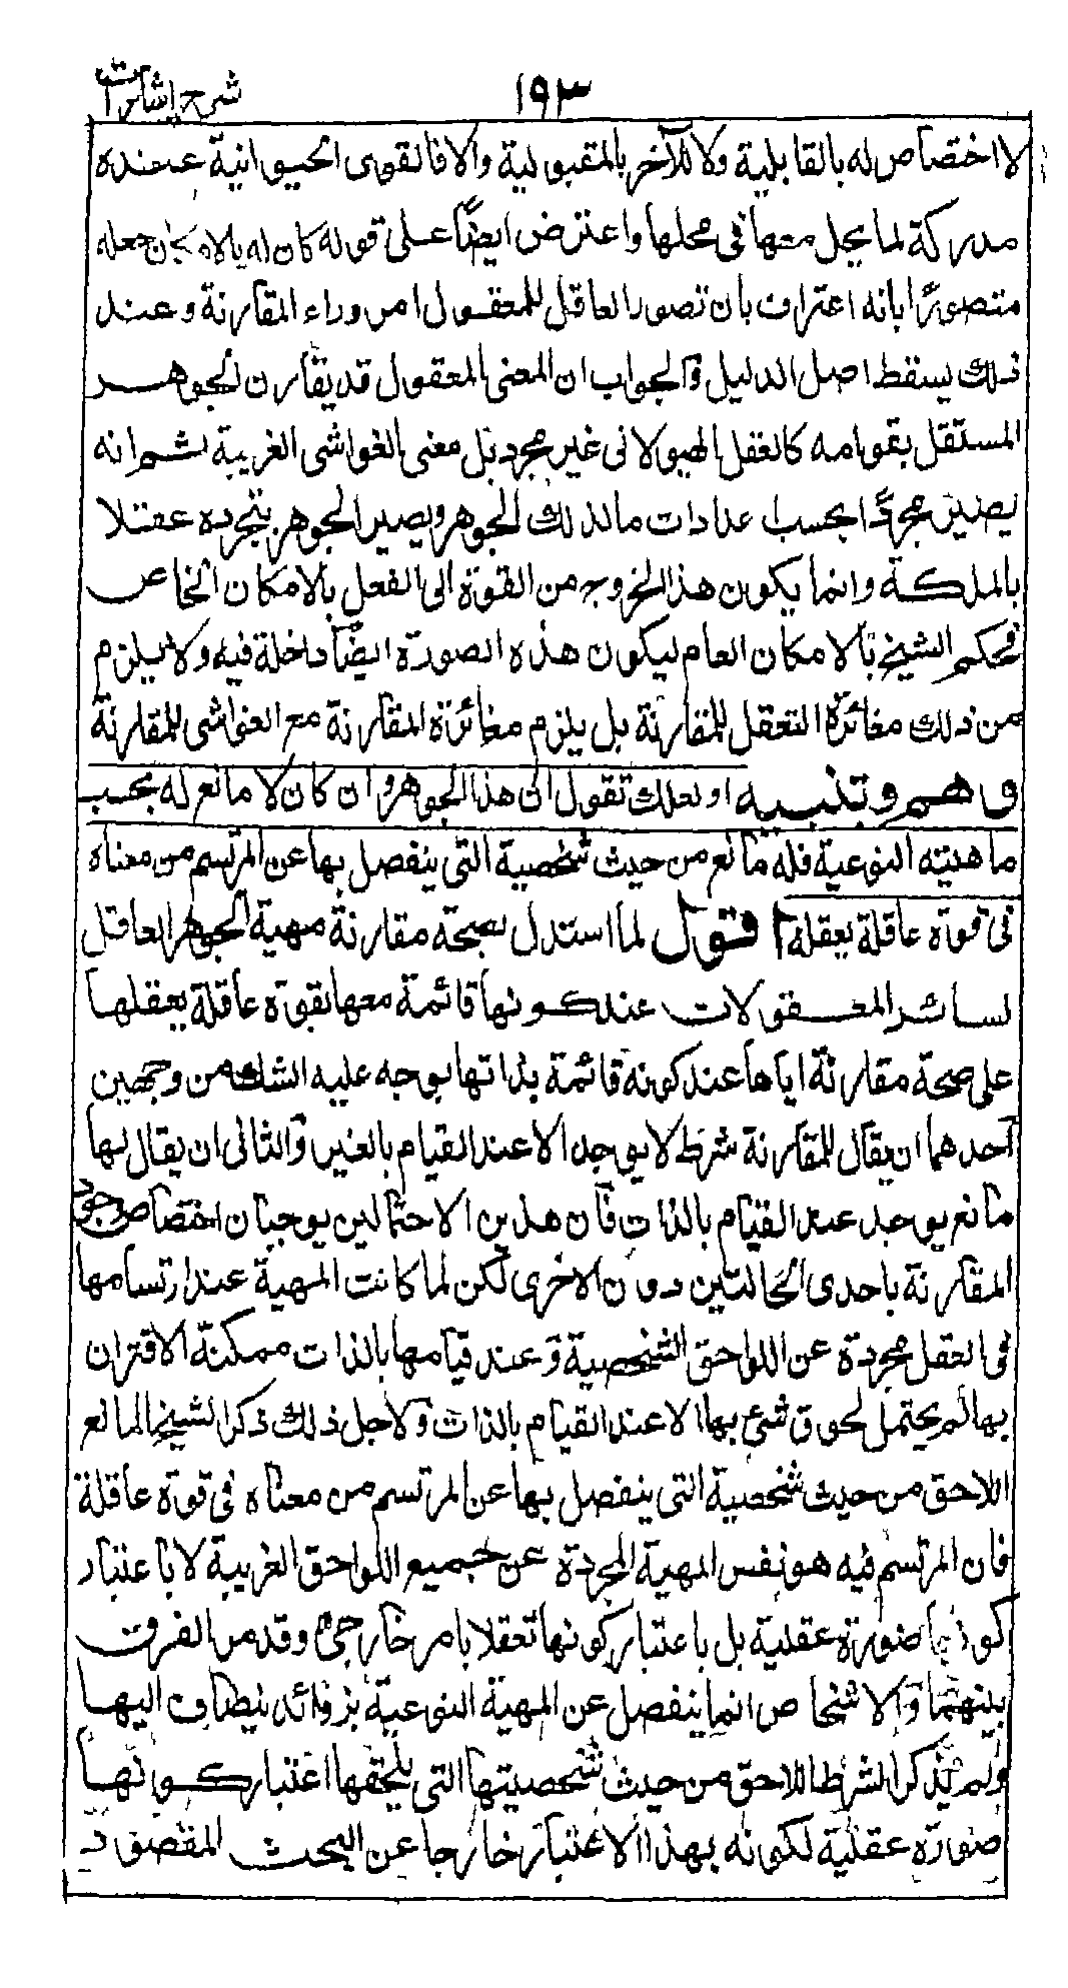 ١٩٣
شرح إشارات
لا اختصاص له بالقابلية ولا للآخر بالمقبولية والا فالقوى الحيوانية عنده
مدركة لما يحل معها فى محلها واعترض ايضًا على قوله كان له بالامكان جعله
متصورًا بانه اعتراف بان تصور العاقل للمعقول امر وراء المقارنة وعند
ذلك يسقط اصل الدليل والجواب ان المعنى المعقول قد يقارن الجوهر
المستقل بقوامه كالعقل الهيولانى غير مجرد بل معنى الغواشى الغريبة ثم انه
يصير مجردًا بحسب عدادات ما لذلك الجوهر ويصير الجوهر بتجرده عقلا
بالملكة وانما يكون هذا الخروج من القوة الى الفعل بالامكان الخاص
فحكم الشيخ بالامكان العام ليكون هذه الصورة ايضًا داخلة فيه ولا يلزم
من ذلك مغائرة التعقل للمقارنة بل يلزم مغائرة المقارنة مع الغواشى للمقارنة
وهم وتنبيه او لعلك تقول ان هذا الجوهر وان كان لا مانع له بحسب
ماهيته النوعية فله مانع من حيث شخصية التى ينفصل بها عن المرتسم من معناه
فى قوة عاقلة يعقله اقول لما استدل بصحة مقارنة مهية الجوهر العاقل
لسائر المعقولات عند كونها قائمة معها بقوة عاقلة يعقلها
على صحة مقارنة اياها عند كونه قائمة بذاتها يوجه عليه الشك من وجهين
احدهما ان يقال للمقارنة شرط لا يوجد الا عند القيام بالغير والثانى ان يقال لها
مانع يوجد عند القيام بالذات فان هذين الاحتمالين يوجبان اختصاص وجود
المقارنة باحدى الحالتين دون الاخرى لكن لما كانت المهية عند ارتسامها
فى العقل مجردة عن اللواحق الشخصية وعند قيامها بالذات ممكنة الاقتران
بها لم يحتمل لحوق شئ بها الا عند القيام بالذات ولاجل ذلك ذكر الشيخ المانع
اللاحق من حيث شخصية التى ينفصل بها عن المرتسم من معناه فى قوة عاقلة
فان المرتسم فيه هو نفس المهية المجردة عن جميع اللواحق الغريبة لا باعتبار
كونها صورة عقلية بل باعتبار كونها تعقلا بامر خارجى وقد مر الفرق
بينهما والاشخاص انما ينفصل عن المهية النوعية بزوائد يضاف اليها
ولم يذكر الشرط اللاحق من حيث شخصيتها التى يلحقها اعتبار كونها
صورة عقلية لكونه بهذا الاعتبار خارجا عن البحث المقصود